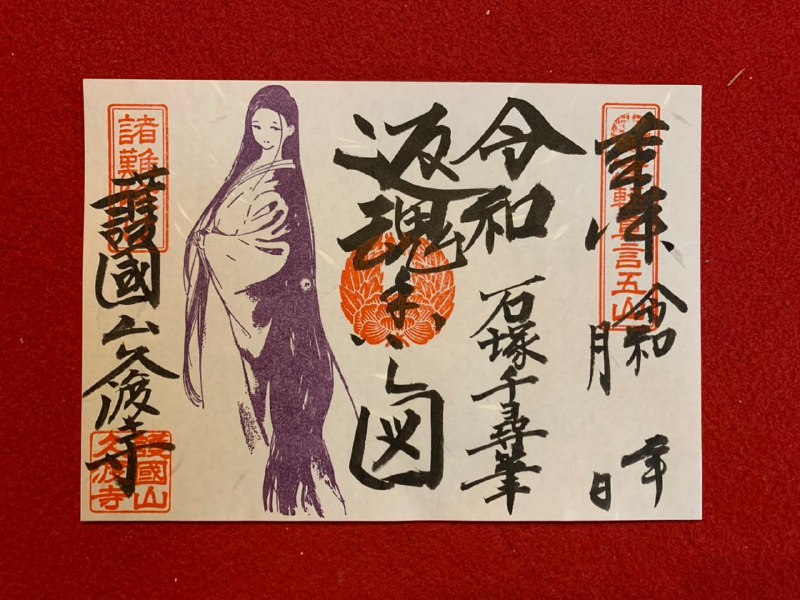 奉拝
輕眞言五山
令和 年
月 日
令和
石塚千尋筆
返魂香之図
諸難
護國山久渡寺
護國山
久渡寺